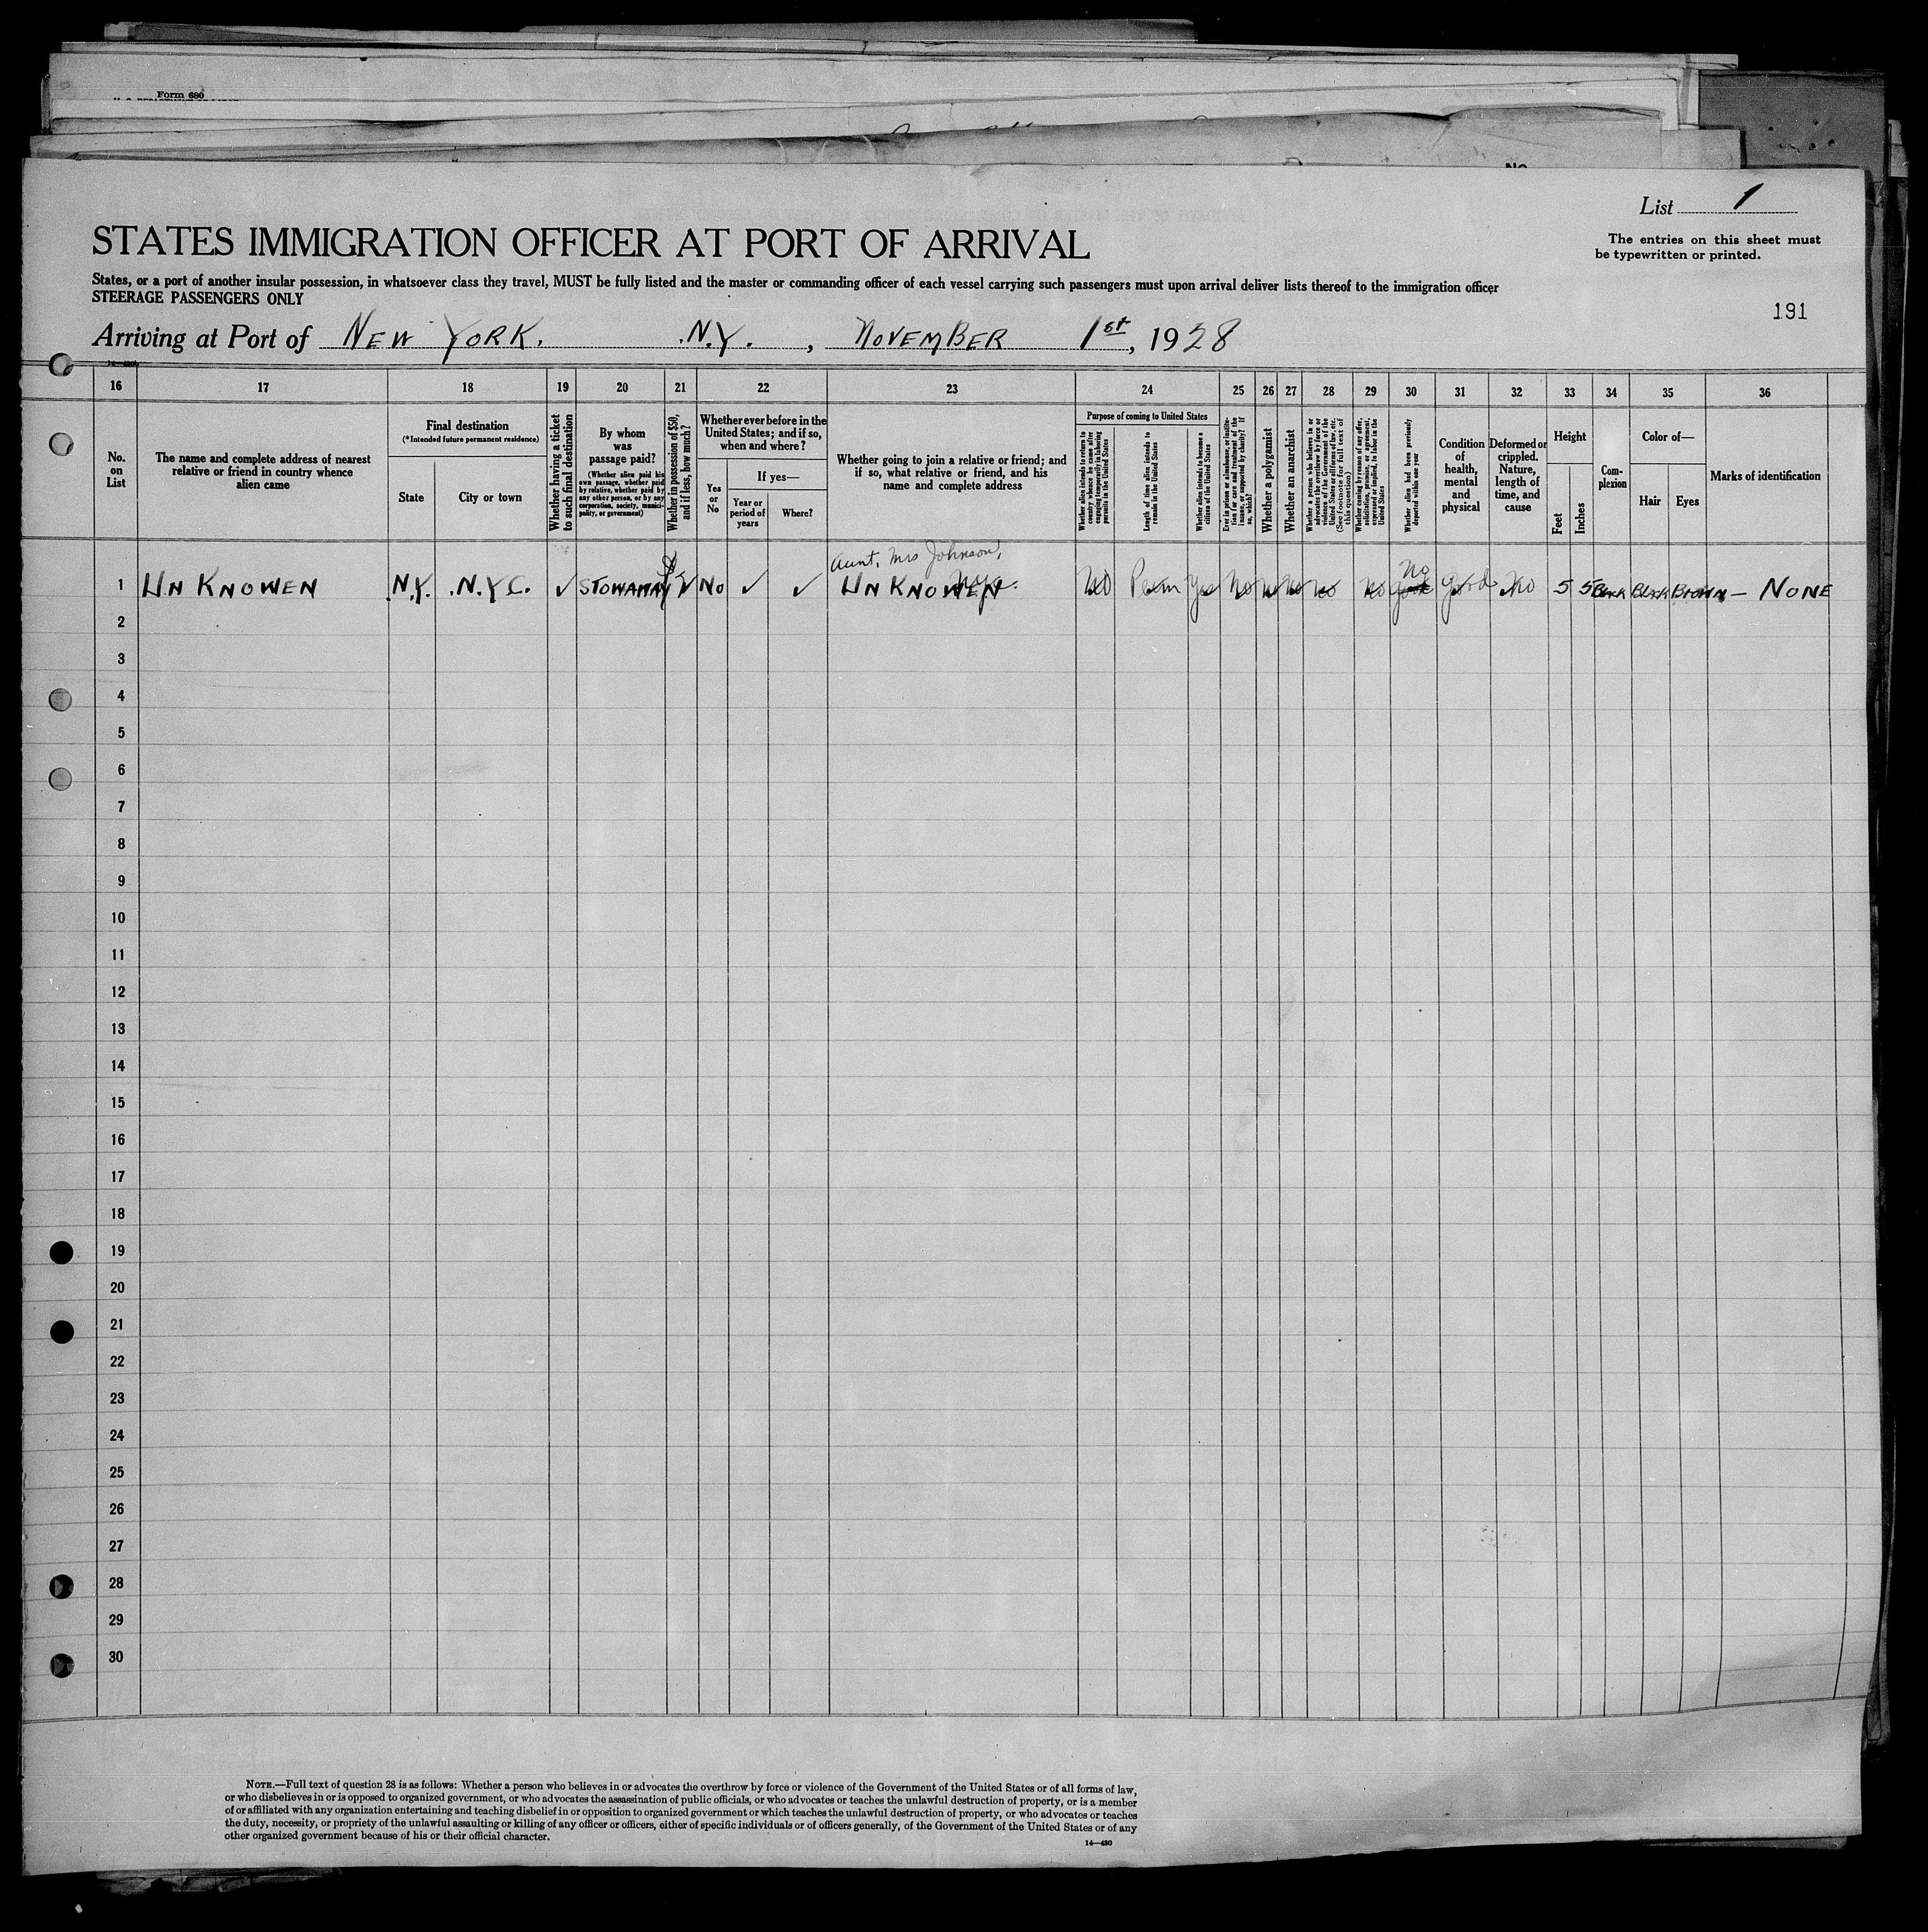 Form 680
No
List 1
STATES IMMIGRATION OFFICER AT PORT OF ARRIVAL
The entries on this sheet must
be typewritten or printed.
States, or a port of another insular possession, in whatsoever class they travel, MUST be fully listed and the master or commanding officer of each vessel carrying such passengers must upon arrival deliver lists thereof to the immigration officer
STEERAGE PASSENGERS ONLY
191
Arriving at Port of NEW YORK. N.Y. , NOVEMBER 1st, 1928
16 17 18 19 20 21 22 23 24 25 26 27 28 29 30 31 32 33 34 35 36
No.
on
List
The name and complete address of nearest
relative or friend in country whence
alien came
Final destination
(*Intended future permanent residence)
State
City or town
Whether having a ticket
to such final destination
By whom
was
passage paid?
(Whether alien paid his
own passage, whether paid
by relative, whether paid by
any other person, or by any
corporation, society, munici-
pality, or government)
Whether in possession of $50,
and if less, how much?
Whether ever before in the
United States; and if so,
when and where?
Yes
or
No
If yes—
Year or
period of
years
Where?
Whether going to join a relative or friend; and
if so, what relative or friend, and his
name and complete address
Purpose of coming to United States
Whether alien intends to return to
country whence he came after
engaging temporarily in laboring
pursuits in the United States
Length of time alien intends to
remain in the United States
Whether alien intends to become a
citizen of the United States
Ever in prison or almshouse, or institu-
tion for care and treatment of the
insane, or supported by charity? If
so, which?
Whether a polygamist
Whether an anarchist
Whether a person who believes in or
advocates the overthrow by force or
violence of the Government of the
United States or all forms of law, etc.
(See footnote for full text of
this question)
Whether coming by reason of any offer,
solicitation, promise, or agreement,
expressed or implied, to labor in the
United States
Whether alien had been previously
deported within one year
Condition
of
health,
mental
and
physical
Deformed or
crippled.
Nature,
length of
time, and
cause
Height
Feet
Inches
Com-
plexion
Color of—
Hair
Eyes
Marks of identification
Aunt, Mrs Johnson,
1 UN KNOWEN N.Y. N.Y C. ✓ STOWAWAY No ✓ ✓ UN KNOWEN NYC. No Perm Yes No No No No No No Good No 5 5 BLACK BLACK BROWN — NONE
2
3
4
5
6
7
8
9
10
11
12
13
14
15
16
17
18
19
20
21
22
23
24
25
26
27
28
29
30
NOTE.—Full text of question 28 is as follows: Whether a person who believes in or advocates the overthrow by force or violence of the Government of the United States or of all forms of law,
or who disbelieves in or is opposed to organized government, or who advocates the assassination of public officials, or who advocates or teaches the unlawful destruction of property, or is a member
of or affiliated with any organization entertaining and teaching disbelief in or opposition to organized government or which teaches the unlawful destruction of property, or who advocates or teaches
the duty, necessity, or propriety of the unlawful assaulting or killing of any officer or officers, either of specific individuals or of officers generally, of the Government of the United States or of any
other organized government because of his or their official character.
14—430